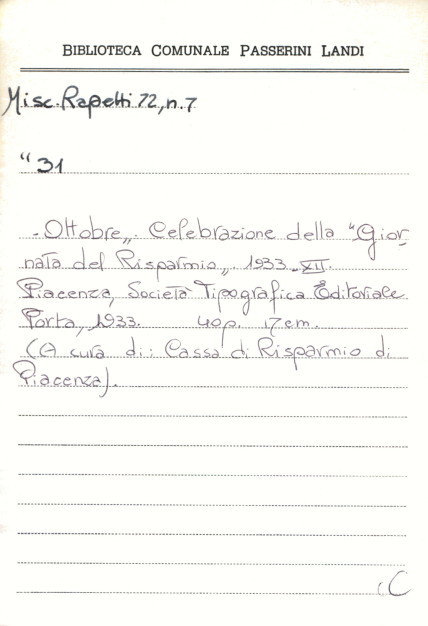 BIBLIOTECA COMUNALE PASSERINI LANDI
Misc. Rapetti 72, n. 7
"31
- Ottobre„. Celebrazione della "Gior
nata del Risparmio„. 1933 - XII.
Piacenza, Società Tipografica Editoriale
Porta, 1933. 40 p. 17 cm.
(A cura di: Cassa di Risparmio di
Piacenza).